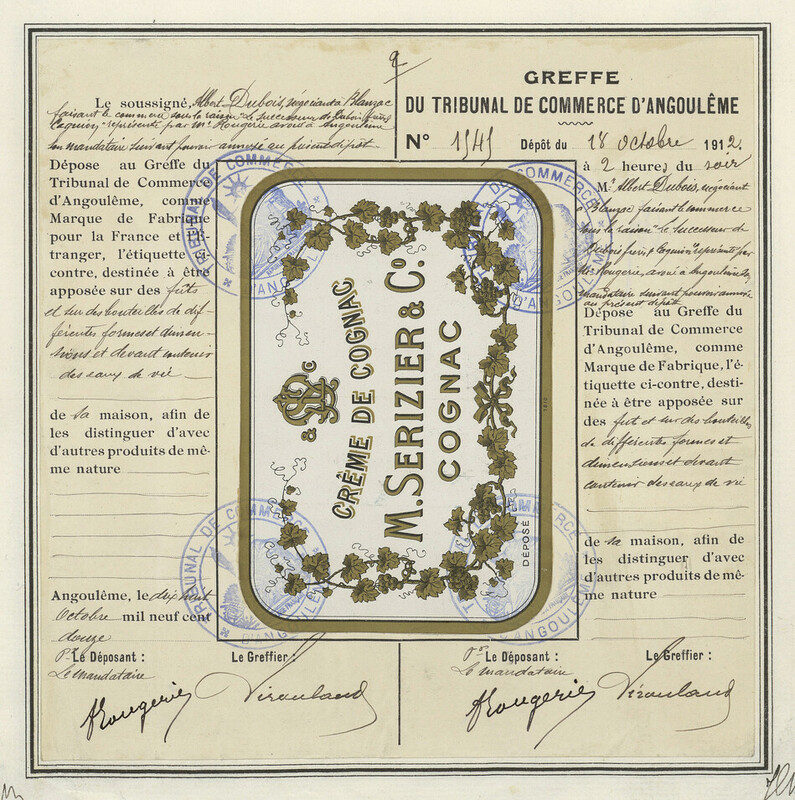 GREFFE
DU TRIBUNAL DE COMMERCE D'ANGOULÊME
N° 1545 Dépôt du 18 Octobre 1912
Le soussigné, Albert Dubois, négociant à Blanzac
faisant le commerce sous la raison "Le Successeur de Dubois frères
Coquin" représenté par Mr Rougerie avoué à Angoulême
son mandataire suivant pouvoir annexé au présent dépôt
Dépose au Gréffe du
Tribunal de Commerce
d'Angoulême, comme
Marque de Fabrique
pour la France et l'É-
tranger, l'étiquette ci-
contre, destinée à être
apposée sur des fûts
et sur des bouteilles de dif-
férentes formes et dimen-
sions et devant contenir
des eaux de vie
de sa maison, afin de
les distinguer d'avec
d'autres produits de mê-
me nature
Angoulême, le dix huit
Octobre mil neuf cent
douze
Pr Le Déposant :
Le mandataire
Le Greffier :
Rougerie
CRÊME DE COGNAC
M. SERIZIER & Co
COGNAC
DÉPOSÉ
TRIBUNAL DE COMMERCE
D'ANGOULÊME
à 2 heures du soir
Mr Albert Dubois, négociant
à Blanzac faisant le commerce
sous la raison "le successeur de
Dubois frères & Coquin" représenté par
Mr Rougerie, avoué à Angoulême, son
mandataire suivant pouvoir annexé
au présent dépôt
Dépose au Greffe du
Tribunal de Commerce
d'Angoulême, comme
Marque de Fabrique, l'é-
tiquette ci-contre, desti-
née à être apposée sur
des fût et sur des bouteilles
de différentes formes et
dimensions et devant
contenir des eaux de vie
de sa maison, afin de
les distinguer d'avec
d'autres produits de mê-
me nature
Pr Le Déposant :
Le mandataire
Le Greffier :
Rougerie